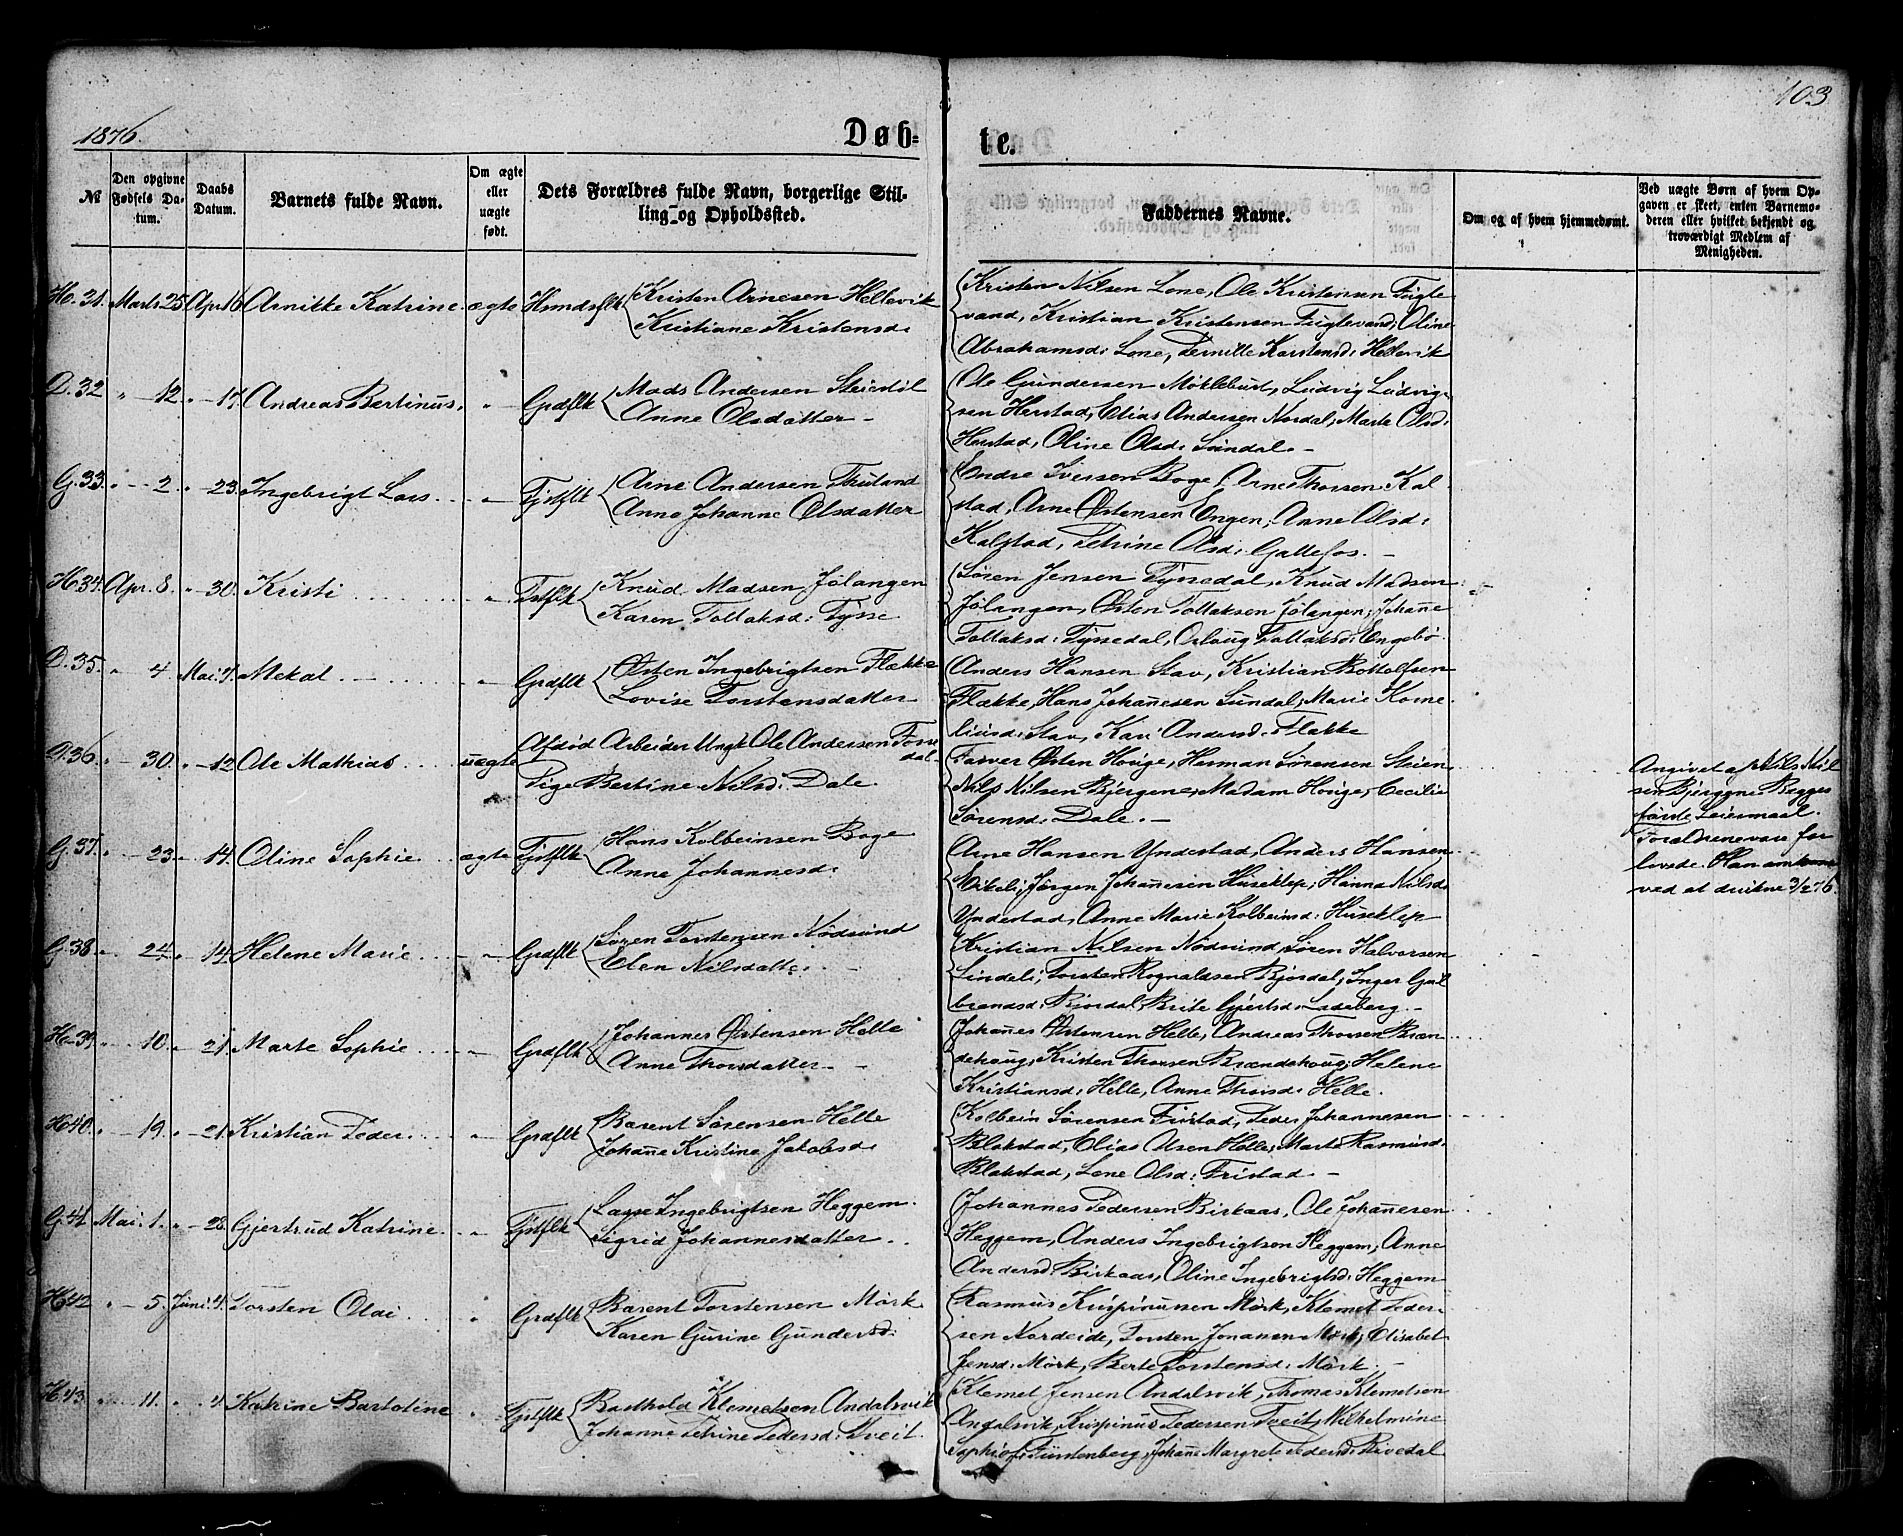 103
1876.
Døb-
te.
№
Den opgivne Fødsels Datum.
Daabs Datum.
Barnets fulde Navn.
Om ægte eller uægte født.
Dets Forældres fulde Navn, borgerlige Stilling og Opholdssted.
Faddernes Navne.
Om og af hvem hjemmedøbt.
Ved uægte Børn af hvem Opgaven er skeet, enten Barnemoderen eller hvilket bekjendt og troværdigt Medlem af Menigheden.
H. 31. Marts 25 Apr. 16 Arnikke Katrine ægte Kristen Arnesen Hellevik
Kristiane Kristensd:
Kristen Nilsen Lone, Ole Kristensen Fugle
vand, Kristian Kristensen Fuglevand, Oline
Abrahamsd: Lone, Pernille Karstensd: Hellevik
D. 32 " - 12. " - 17. Andreas Bertinus. " Grdflk Mads Andersen Steiestøl
Anne Olsdatter -
Ole Gundersen Møklebust, Ludvig Ludvig-
sen Herstad, Elias Andersen Nordal, Marte Olsd:
Herstad, Oline Olsd: Sandal. -
G. 33. " - 2. " - 23. Ingebrigt Lars. " Fjstflk Arne Andersen
Anne Johanne Olsdatter
Endre Iversen Boge, Arne Thorsen Kal
stad, Arne Østensen Engen, Anne Olsd:
Kalstad, Petrine Olsd: -
H. 34. Apr. 8. " - 30. Kristi " Knud Madsen Jølangen
Karen Tollaksd: Tysse
Søren Jensen Tyssedal, Knud Madsen
Jølangen, Østen Tollaksen Jølangen, Johanne
Tollaksd: Tyssedal, Tollaksd: Engebø.
D. 35. " - 4 Mai 7. Mekal " Grdflk Østen Ingebrigtsen Flække
Lovise Torstensdatter
Anders Hansen Stav, Kristian Bottolfsen
Flække, Hans Johannesen Sundal, Marie Korne
liusd: Stav, Kari Andersd: Flække
D. 36 " - 30. " - 12. Ole Mathias uægte Afdød Arbeider Ungk. Ole Andersen Fosse
dal
Pige Bertine Nilsd: Dale
Farver Østen Houge, Herman Sørensen Steien
Nils Nilsen Bjergene, Madam Houge, Cecilie
Sørensd: Dale. -
Angivet af Nils Nil
sen Bjergene Begges
første Leiermaal.
Forældrene vare for
lovede. Han omkom
ved at drukne 3/2 76
G. 37. " - 23. " - 14. Oline Sophie ægte Fjstflk Hans Kolbeinsen Boge
Anne Johannesd:
Arne Hansen Yndestad, Anders Hansen
Vikeli, Jørgen Johannesen Huseklep, Hanna Nilsd:
Yndestad, Anne Marie Kolbeinsd: Huseklep
G. 38. " - 24 " - 14. Helene Marie " Grdflk Søren Torstensen Nødsund
Elen Nilsdatter -
Kristian Nilsen Nødsund, Søren Halvorsen
Lindeli, Torsten Rognaldsen Bjordal, Inger Gul
brandsd: Bjordal, Brite Gjertsd: Ladeberg -
H. 39 " - 10. " - 21. Marte Sophie " Grdflk Johannes Østensen Helle
Anne Thorsdatter -
Johanes Østensen Helle, Andreas Thorsen Bræn
dehoug, Kristen Thorsen Brændehoug, Helene
Kristiansd: Helle, Anne Thorsd: Helle.
H. 40. " - 19. " - 21. Kristian Peder. " Grdflk Barent Sørensen Helle
Johane Kristine Jakobsd:
Kolbein Sørensen Fristad, Peder Johannesen
Blakstad, Elias Olsen Helle, Marte Rasmusd:
Blakstad, Lene Olsd: Fristad. -
G. 41 Mai. 1. " - 28. Gjertrud Katrine. " Fjstflk Lasse Ingebrigtsen Heggem.
Sigrid Johannesdatter
Johannes Pedersen Birkaas, Ole Johannesen
Heggem, Anders Ingebrigtsen Heggem, Anne
Andersd: Birkaas, Oline Ingebrigtsd: Heggem
H. 42 " - 5. Juni 4. Torsten Olai " Grdflk Barent Torstensen Mørk
Karen Gurine Gundersd:
Rasmus Krispinussen Mørk, Klemet Peder-
sen Nordeide, Torsten Johansen Mørk, Elisabet
Jensd: Mørk, Berte Torstensd: Mørk. -
H. 43. " 11. " 4 Katrine Bartoline " Fjstflk Barthold Klemetsen Andalsvik
Johanne Petrine Pedersd: Tveit.
Klemet Jensen Andalsvik, Thomas Klemetsen
Andalsvik, Krispinus Pedersen Tveit, Wilhelmine
Sophie Fürstenberg, Johane Margrete Pedersd: Rivedal